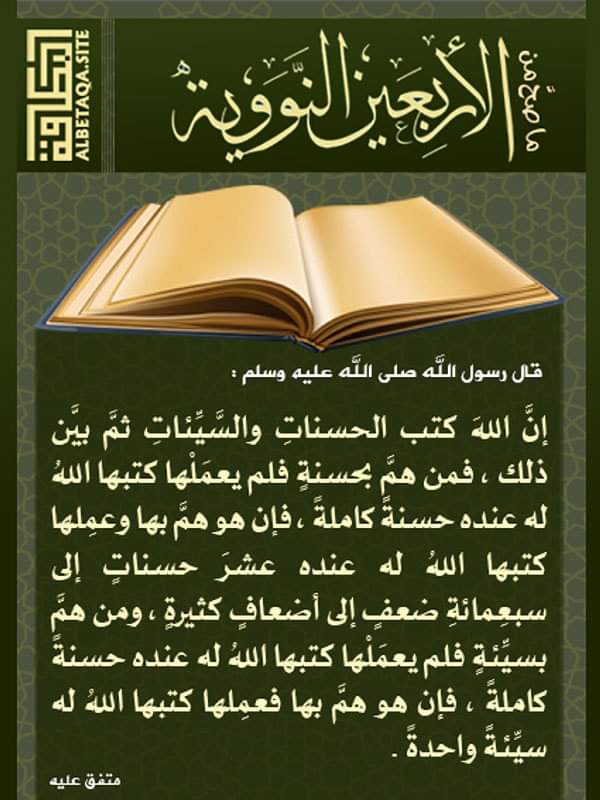 ما صح من
الأربعين النَّوَوية
البطاقة
ALBETAQA.SITE
قال رسول اللَّه صلى اللَّه عليه وسلم :
إنَّ اللهَ كتب الحسناتِ والسَّيِّئاتِ ثمَّ بيَّن
ذلك ، فمن همَّ بحسنةٍ فلم يعمَلْها كتبها اللهُ
له عنده حسنةً كاملةً ، فإن هو همَّ بها وعمِلها
كتبها اللهُ له عنده عشرَ حسناتٍ إلى
سبعِمائةِ ضعفٍ إلى أضعافٍ كثيرةٍ ، ومن همَّ
بسيِّئةٍ فلم يعمَلْها كتبها اللهُ له عنده حسنةً
كاملةً ، فإن هو همَّ بها فعمِلها كتبها اللهُ له
سيِّئةً واحدةً .
متفق عليه